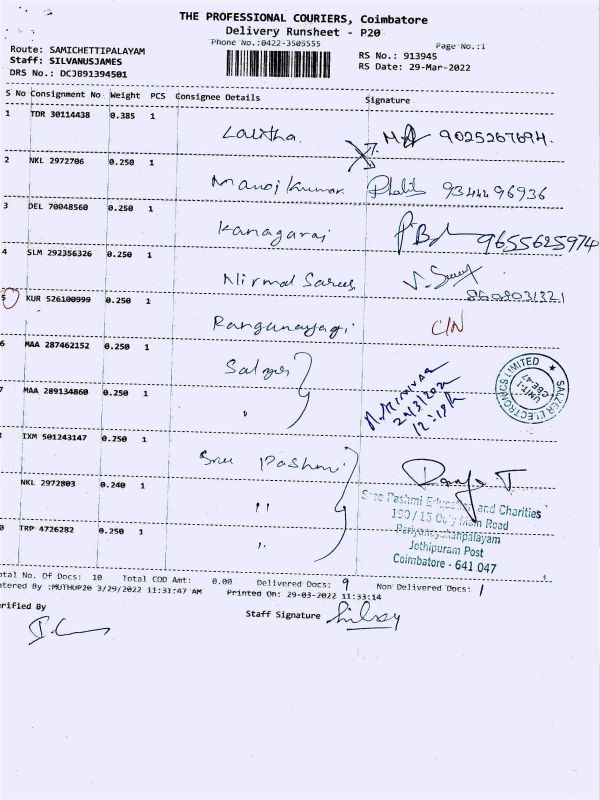 THE PROFESSIONAL COURIERS, Coimbatore
Delivery Runsheet - P20
Phone No.:0422-3505555
Page No.:1
Route: SAMICHETTIPALAYAM
Staff: SILVANUSJAMES
DRS No.: DCJB91394501
RS No.: 913945
RS Date: 29-Mar-2022
S No Consignment No Weight PCS Consignee Details Signature
1 TDR 30114438 0.385 1
Lalitha 9025267694.
2 NKL 2972706 0.250 1
Manoj Kumar 9344496936
3 DEL 70048560 0.250 1
Kanagaraj 9655625974
4 SLM 292356326 0.250 1
Nirmal Sarees
8608031321
5 KUR 526100999 0.250 1
Ranganayagi C/N
6 MAA 287462152 0.250 1
Salzer
7 MAA 289134860 0.250 1
"
SALZER ELECTRONICS LIMITED
UNIT-1
CBE-47
IXM 501243147 0.250 1
Sree Pashmi
NKL 2972803 0.240 1
"
0 TRP 4726282 0.250 1
"
Sree Pashmi Education and Charities
Main Road
Jothipuram Post
Coimbatore - 641 047
otal No. Of Docs: 10 Total COD Amt: 0.00 Delivered Docs: 9 Non Delivered Docs: 1
tered By :MUTHUP20 3/29/2022 11:31:47 AM Printed On: 29-03-2022 11:33:14
erified By
Staff Signature